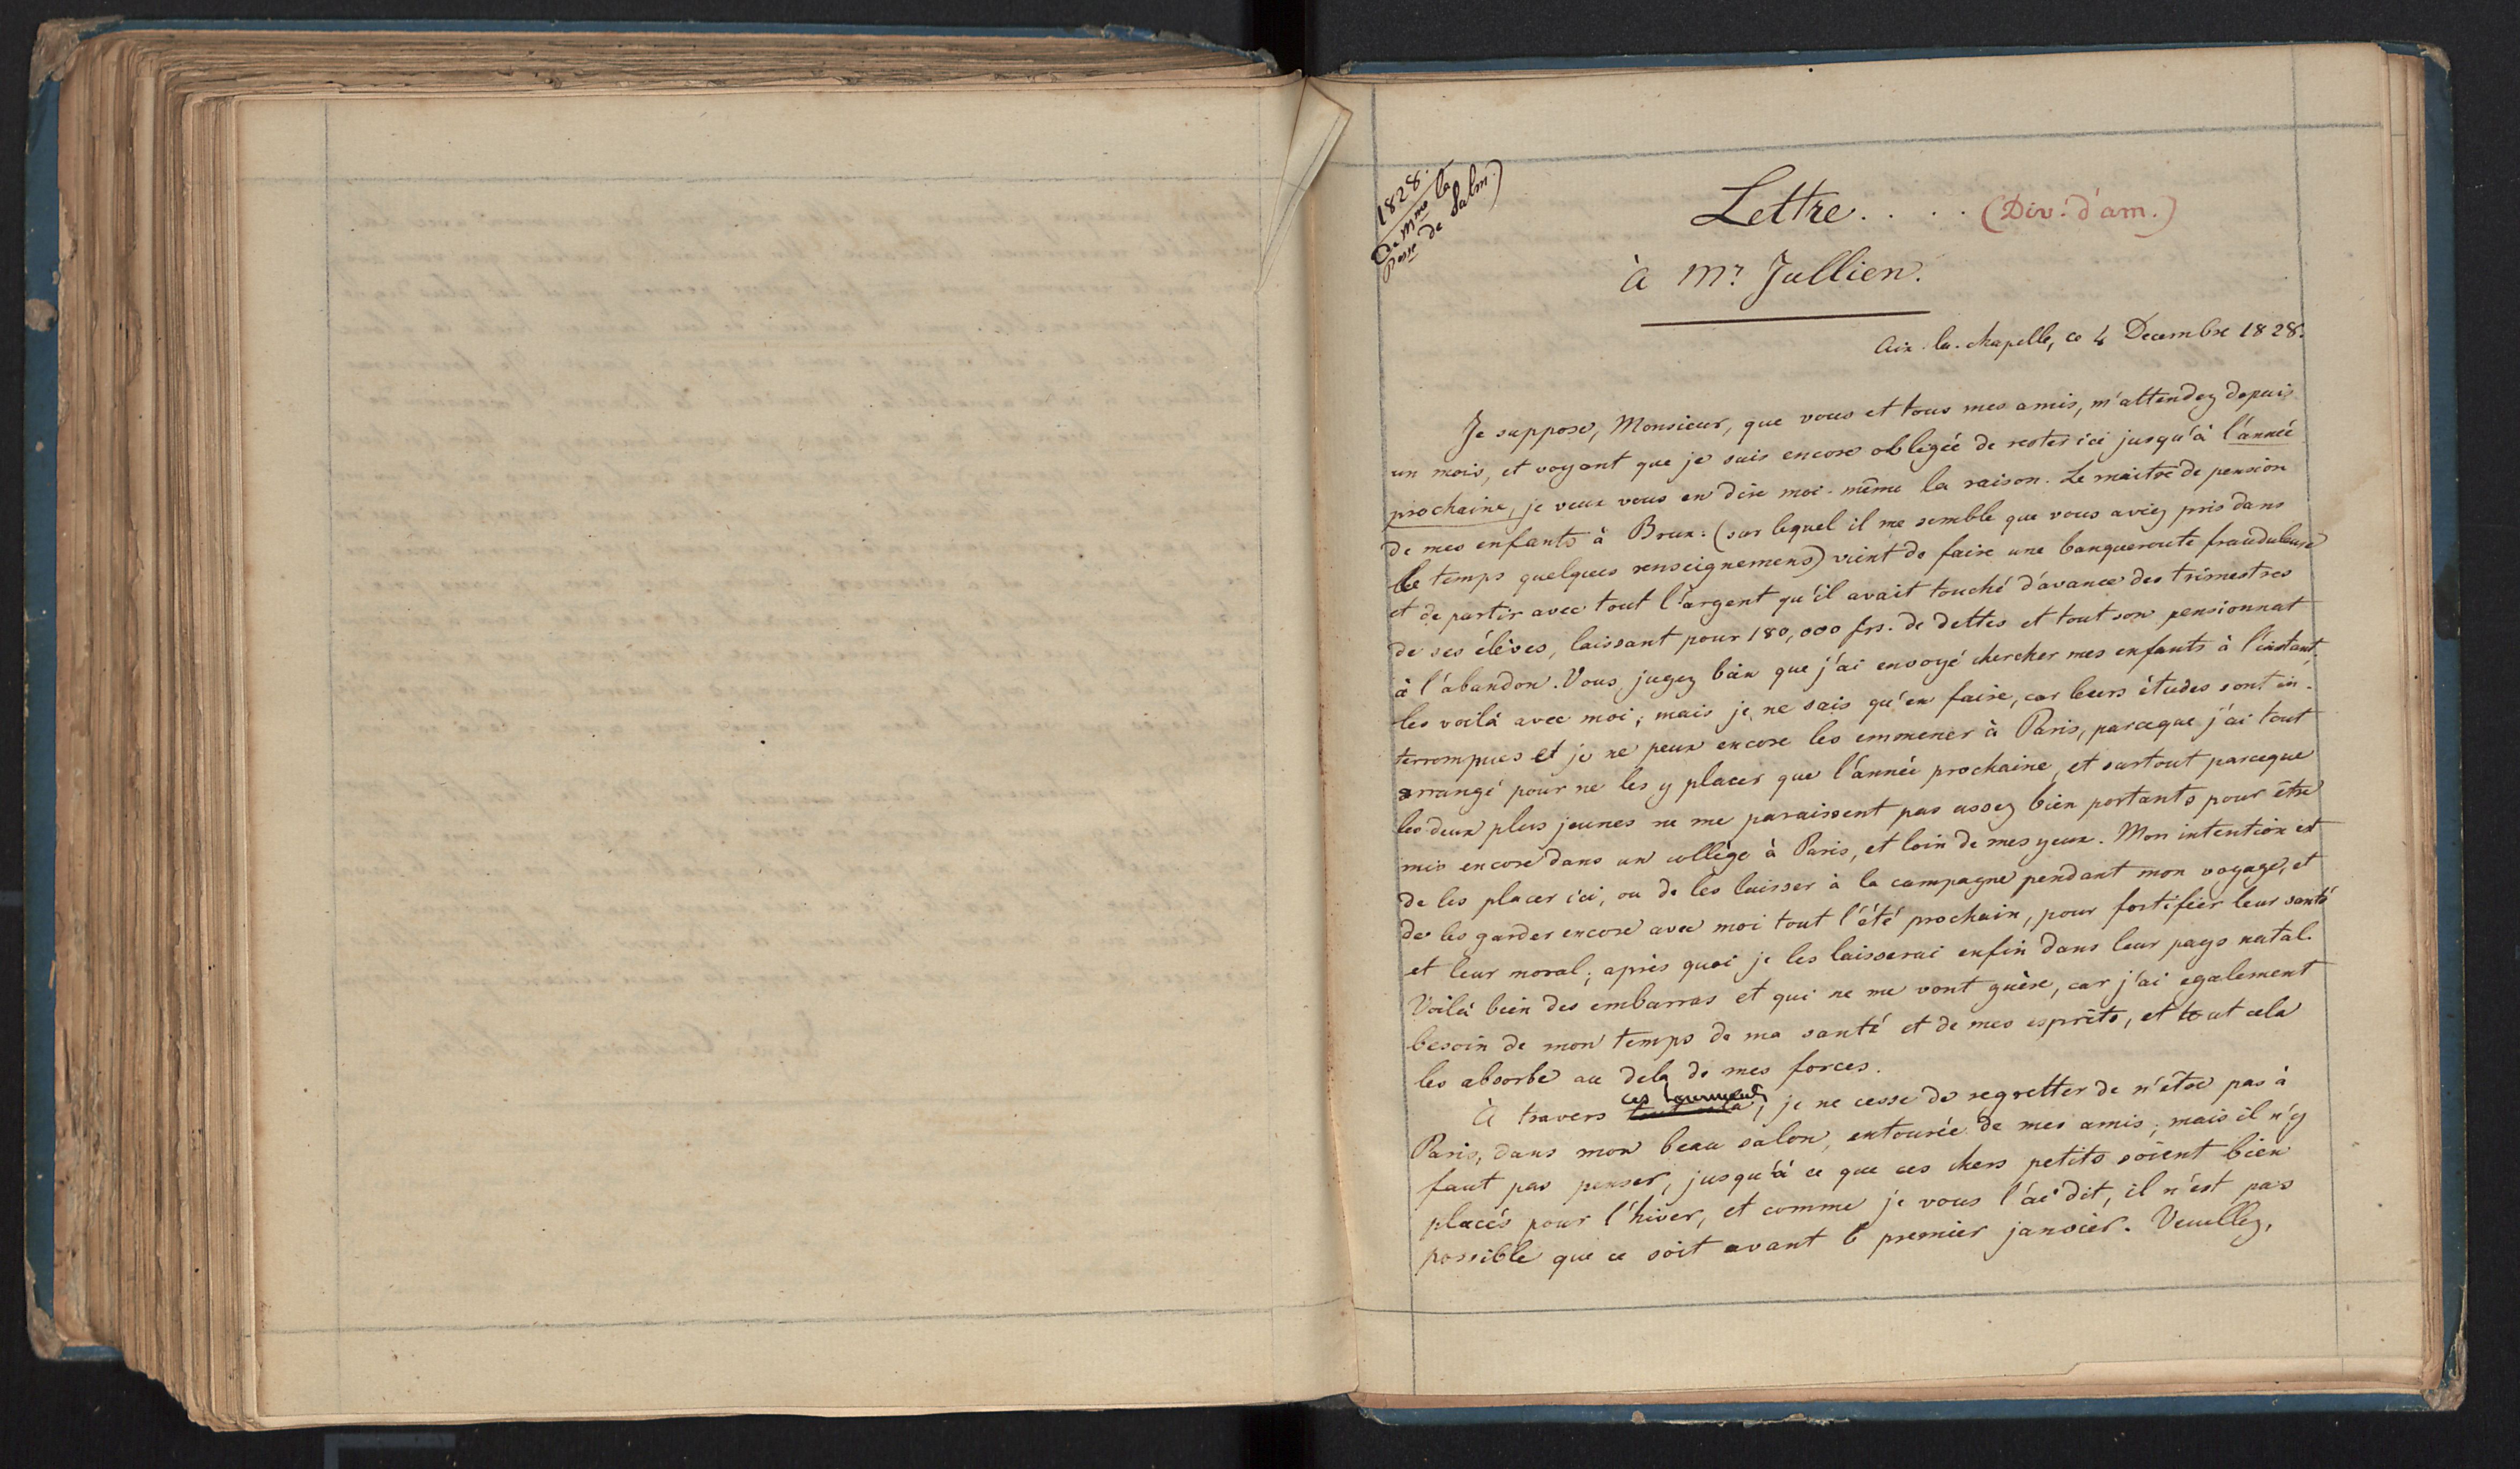 1828.
De Mme la
Pesse de Salm.)
Lettre. . . . (Div. d'am.)
à Mr. Jullien.
Aix-la-chapelle, ce 4 Decembre 1828.
Je suppose, Monsieur, que vous et tous mes amis, m'attendez depuis
un mois, et voyant que je suis encore obligée de rester ici jusqu'à l'année
prochaine, je veux vous en dire moi-même la raison. Le maitre de pension
de mes enfants à Brux: (sur lequel il me semble que vous aviez pris dans
le temps quelques renseignemens) vient de faire une banqueroute frauduleuse
et de partir avec tout l'argent qu'il avait touché d'avance des trimestres
de ses élèves, laissant pour 180,000 frs. de dettes et tout son pensionnat
à l'abandon. Vous jugez bien que j'ai envoyé chercher mes enfants à l'instant.
les voilà avec moi; mais je ne sais qu'en faire, car leurs études sont in-
terrompues et je ne peux encore les emmener à Paris, parceque j'ai tout
arrangé pour ne les y placer que l'année prochaine, et surtout parceque
les deux plus jeunes ne me paraissent pas assez bien portants pour être
mis encore dans un collège à Paris, et loin de mes yeux. Mon intention est
de les placer ici, ou de les laisser à la campagne pendant mon voyage, et
de les garder encore avec moi tout l'été prochain, pour fortifier leur santé
et leur moral; après quoi je les laisserai enfin dans leur pays natal.
Voilà bien des embarras et qui ne me vont guère, car j'ai egalement
besoin de mon temps de ma santé et de mes esprits, et tout cela
les absorbe au delà de mes forces.
ces tourments
à travers tout cela, je ne cesse de regretter de n'être pas à
Paris, dans mon beau salon, entourée de mes amis; mais il n'y
faut pas penser, jusqu'à ce que ces chers petits soient bien
placés pour l'hiver, et comme je vous l'ai dit, il n'est pas
possible que ce soit avant le premier janvier. Veuillez,